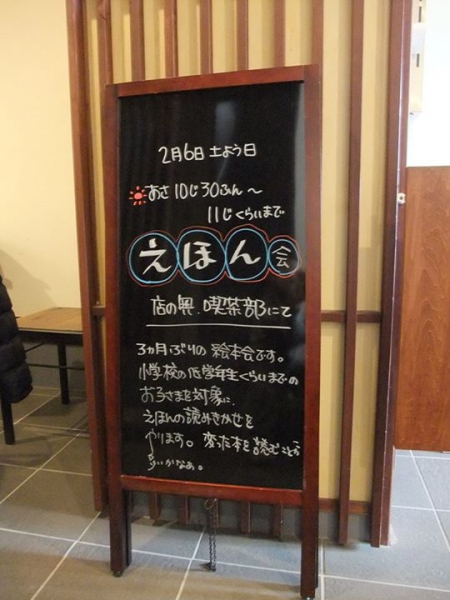 2月6日 土よう日
あさ10じ30ふん～
11じくらいまで
えほん会
店の奥、喫茶部にて
3ヵ月ぶりの絵本会です。
小学校の低学年生くらいまでの
お子さまを対象に、
えほんの読みきかせを
やります。変った本を読むことも
かなあ。